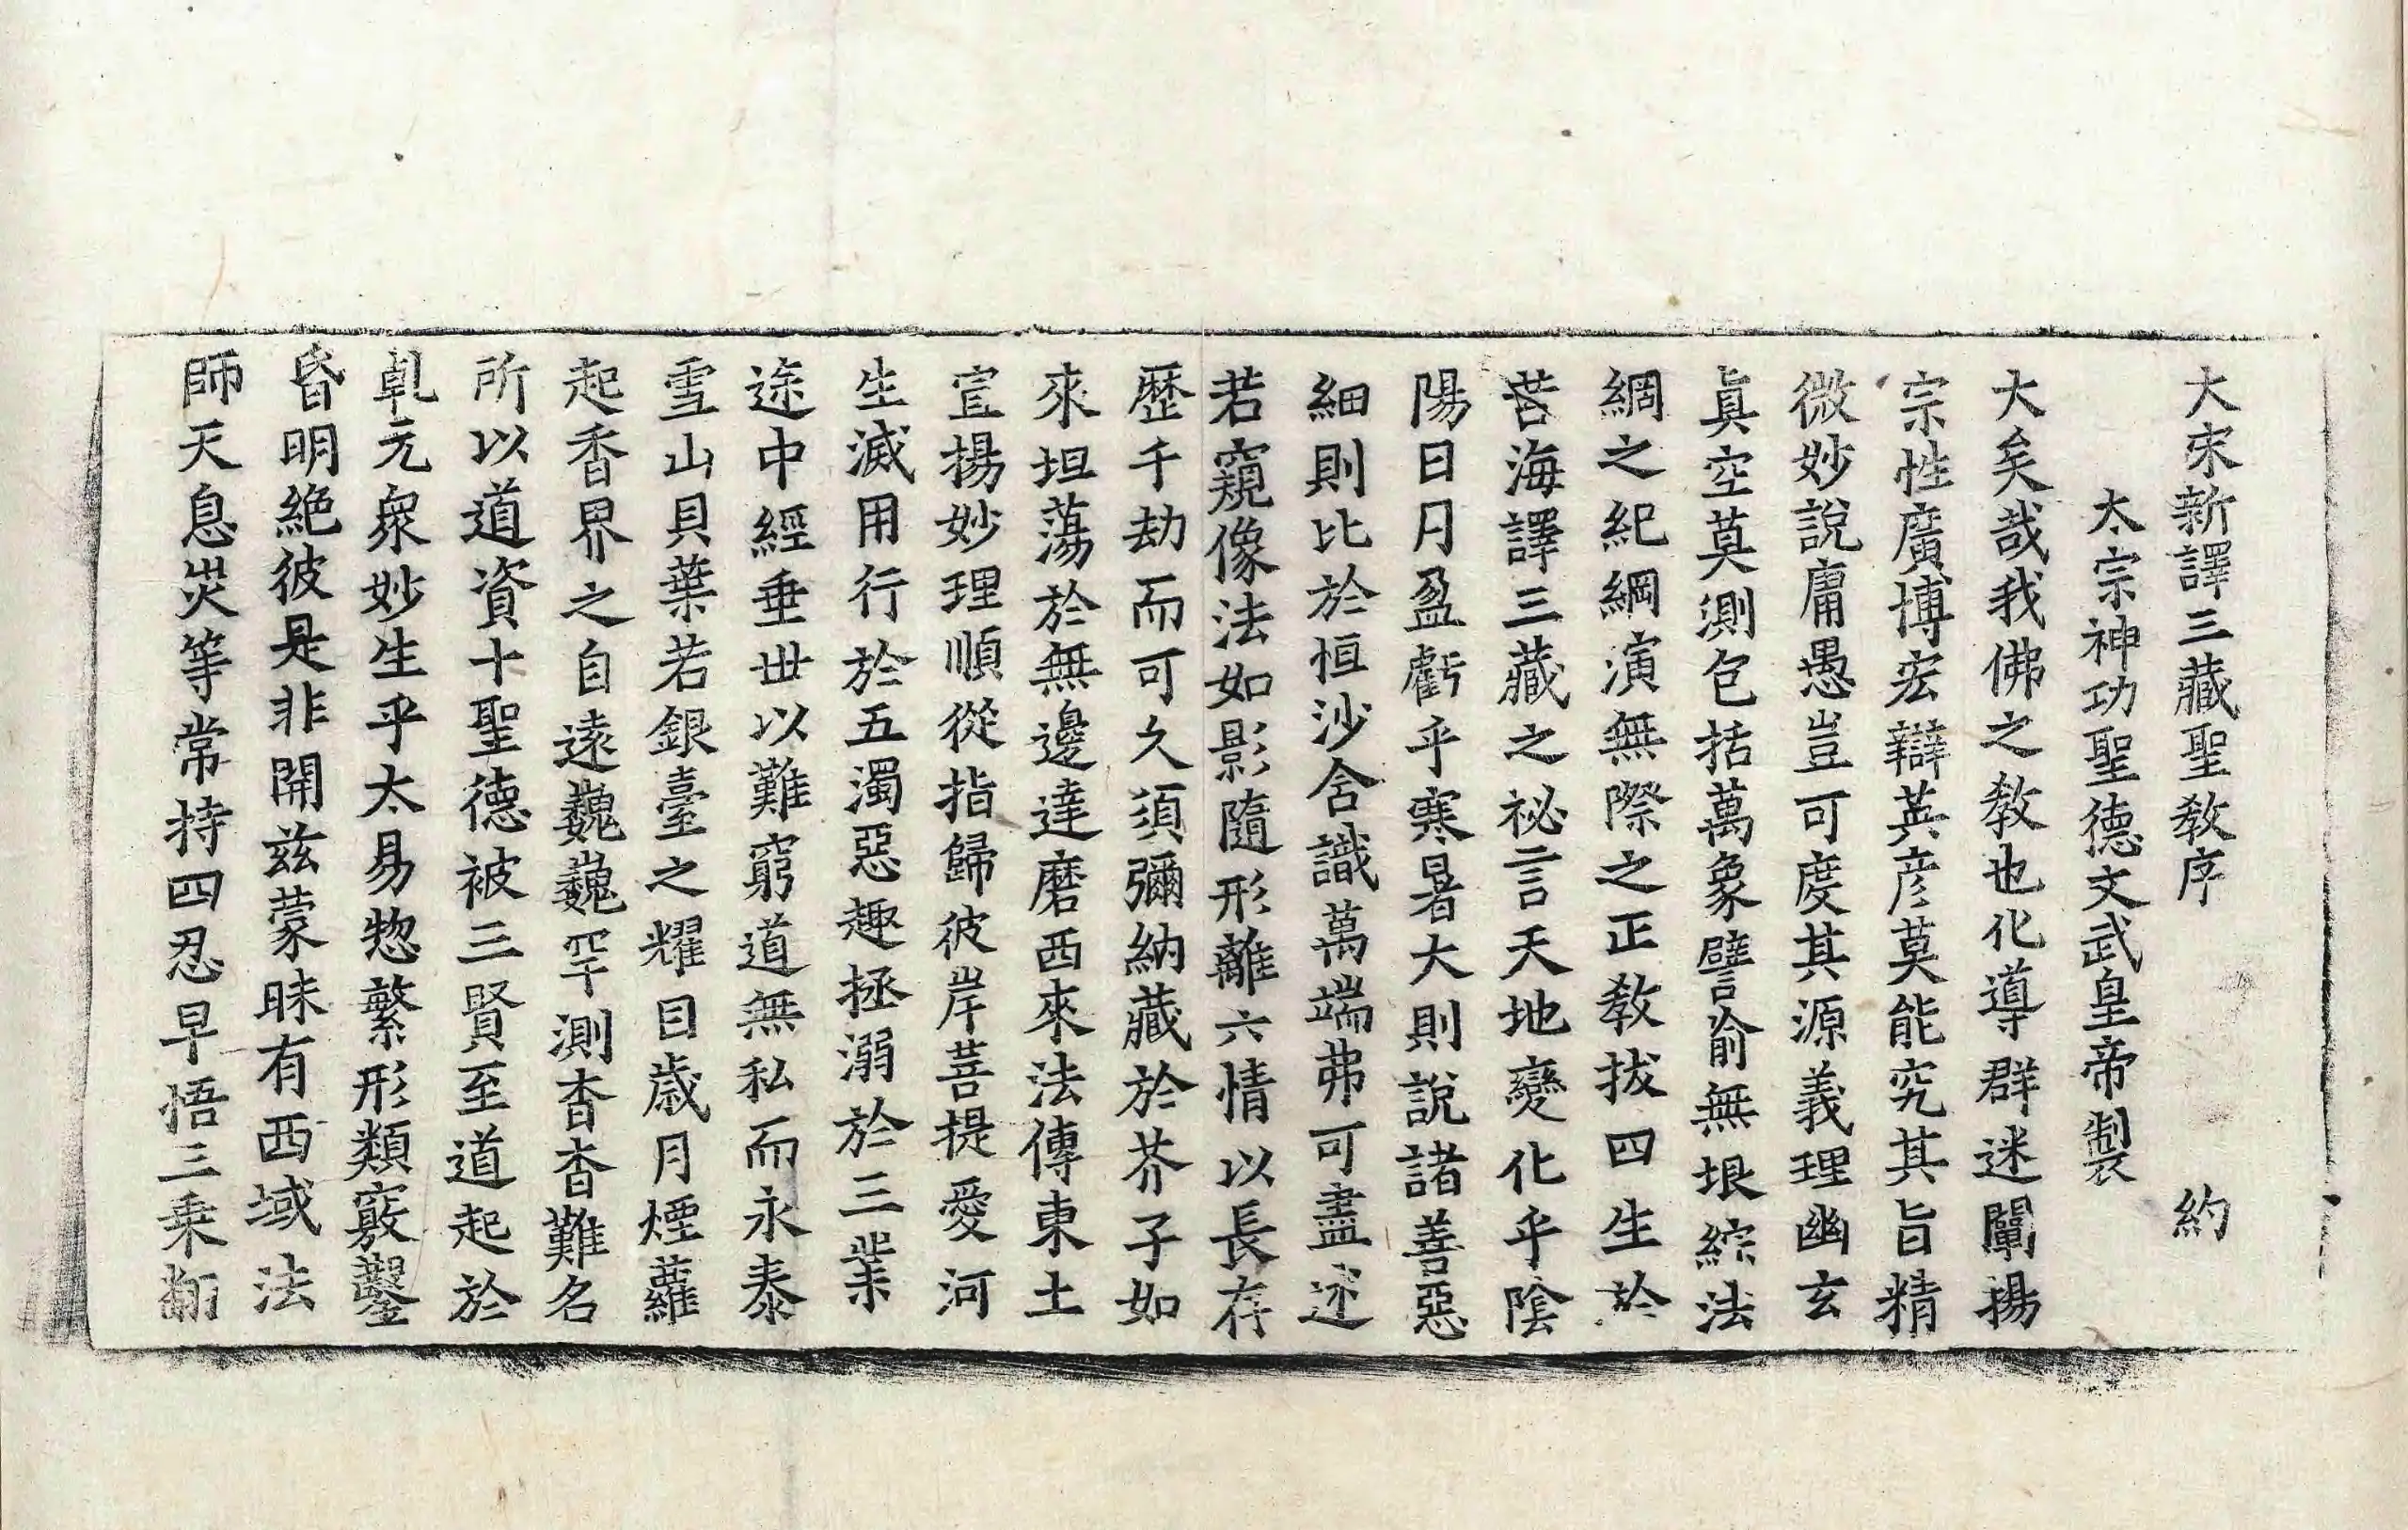 大宋新譯三藏聖教序　約
太宗神功聖德文武皇帝製
大矣哉我佛之教也化導群迷闡揚
宗性廣博宏辯英彦莫能究其旨精
微妙說庸愚豈可度其源義理幽玄
眞空莫測包括萬象譬喻無垠綜法
網之紀綱演無際之正教拔四生於
苦海譯三藏之祕言天地變化乎陰
陽日月盈虧乎寒暑大則說諸善惡
細則比於恒沙含識萬端弗可盡述
若窺像法如影隨形離六情以長存
歷千劫而可久須彌納藏於芥子如
來坦蕩於無邊達磨西來法傳東土
宣揚妙理順從指歸彼岸菩提愛河
生滅用行於五濁惡趣拯溺於三業
途中經垂世以難窮道無私而永泰
雪山貝葉若銀臺之耀目歲月煙蘿
起香界之自遠巍巍罕測杳杳難名
所以道資十聖德被三賢至道起於
乹元衆妙生乎太易惣繁形類竅鑿
昏明絶彼是非開茲蒙昧有西域法
師天息災等常持四忍早悟三乗翻